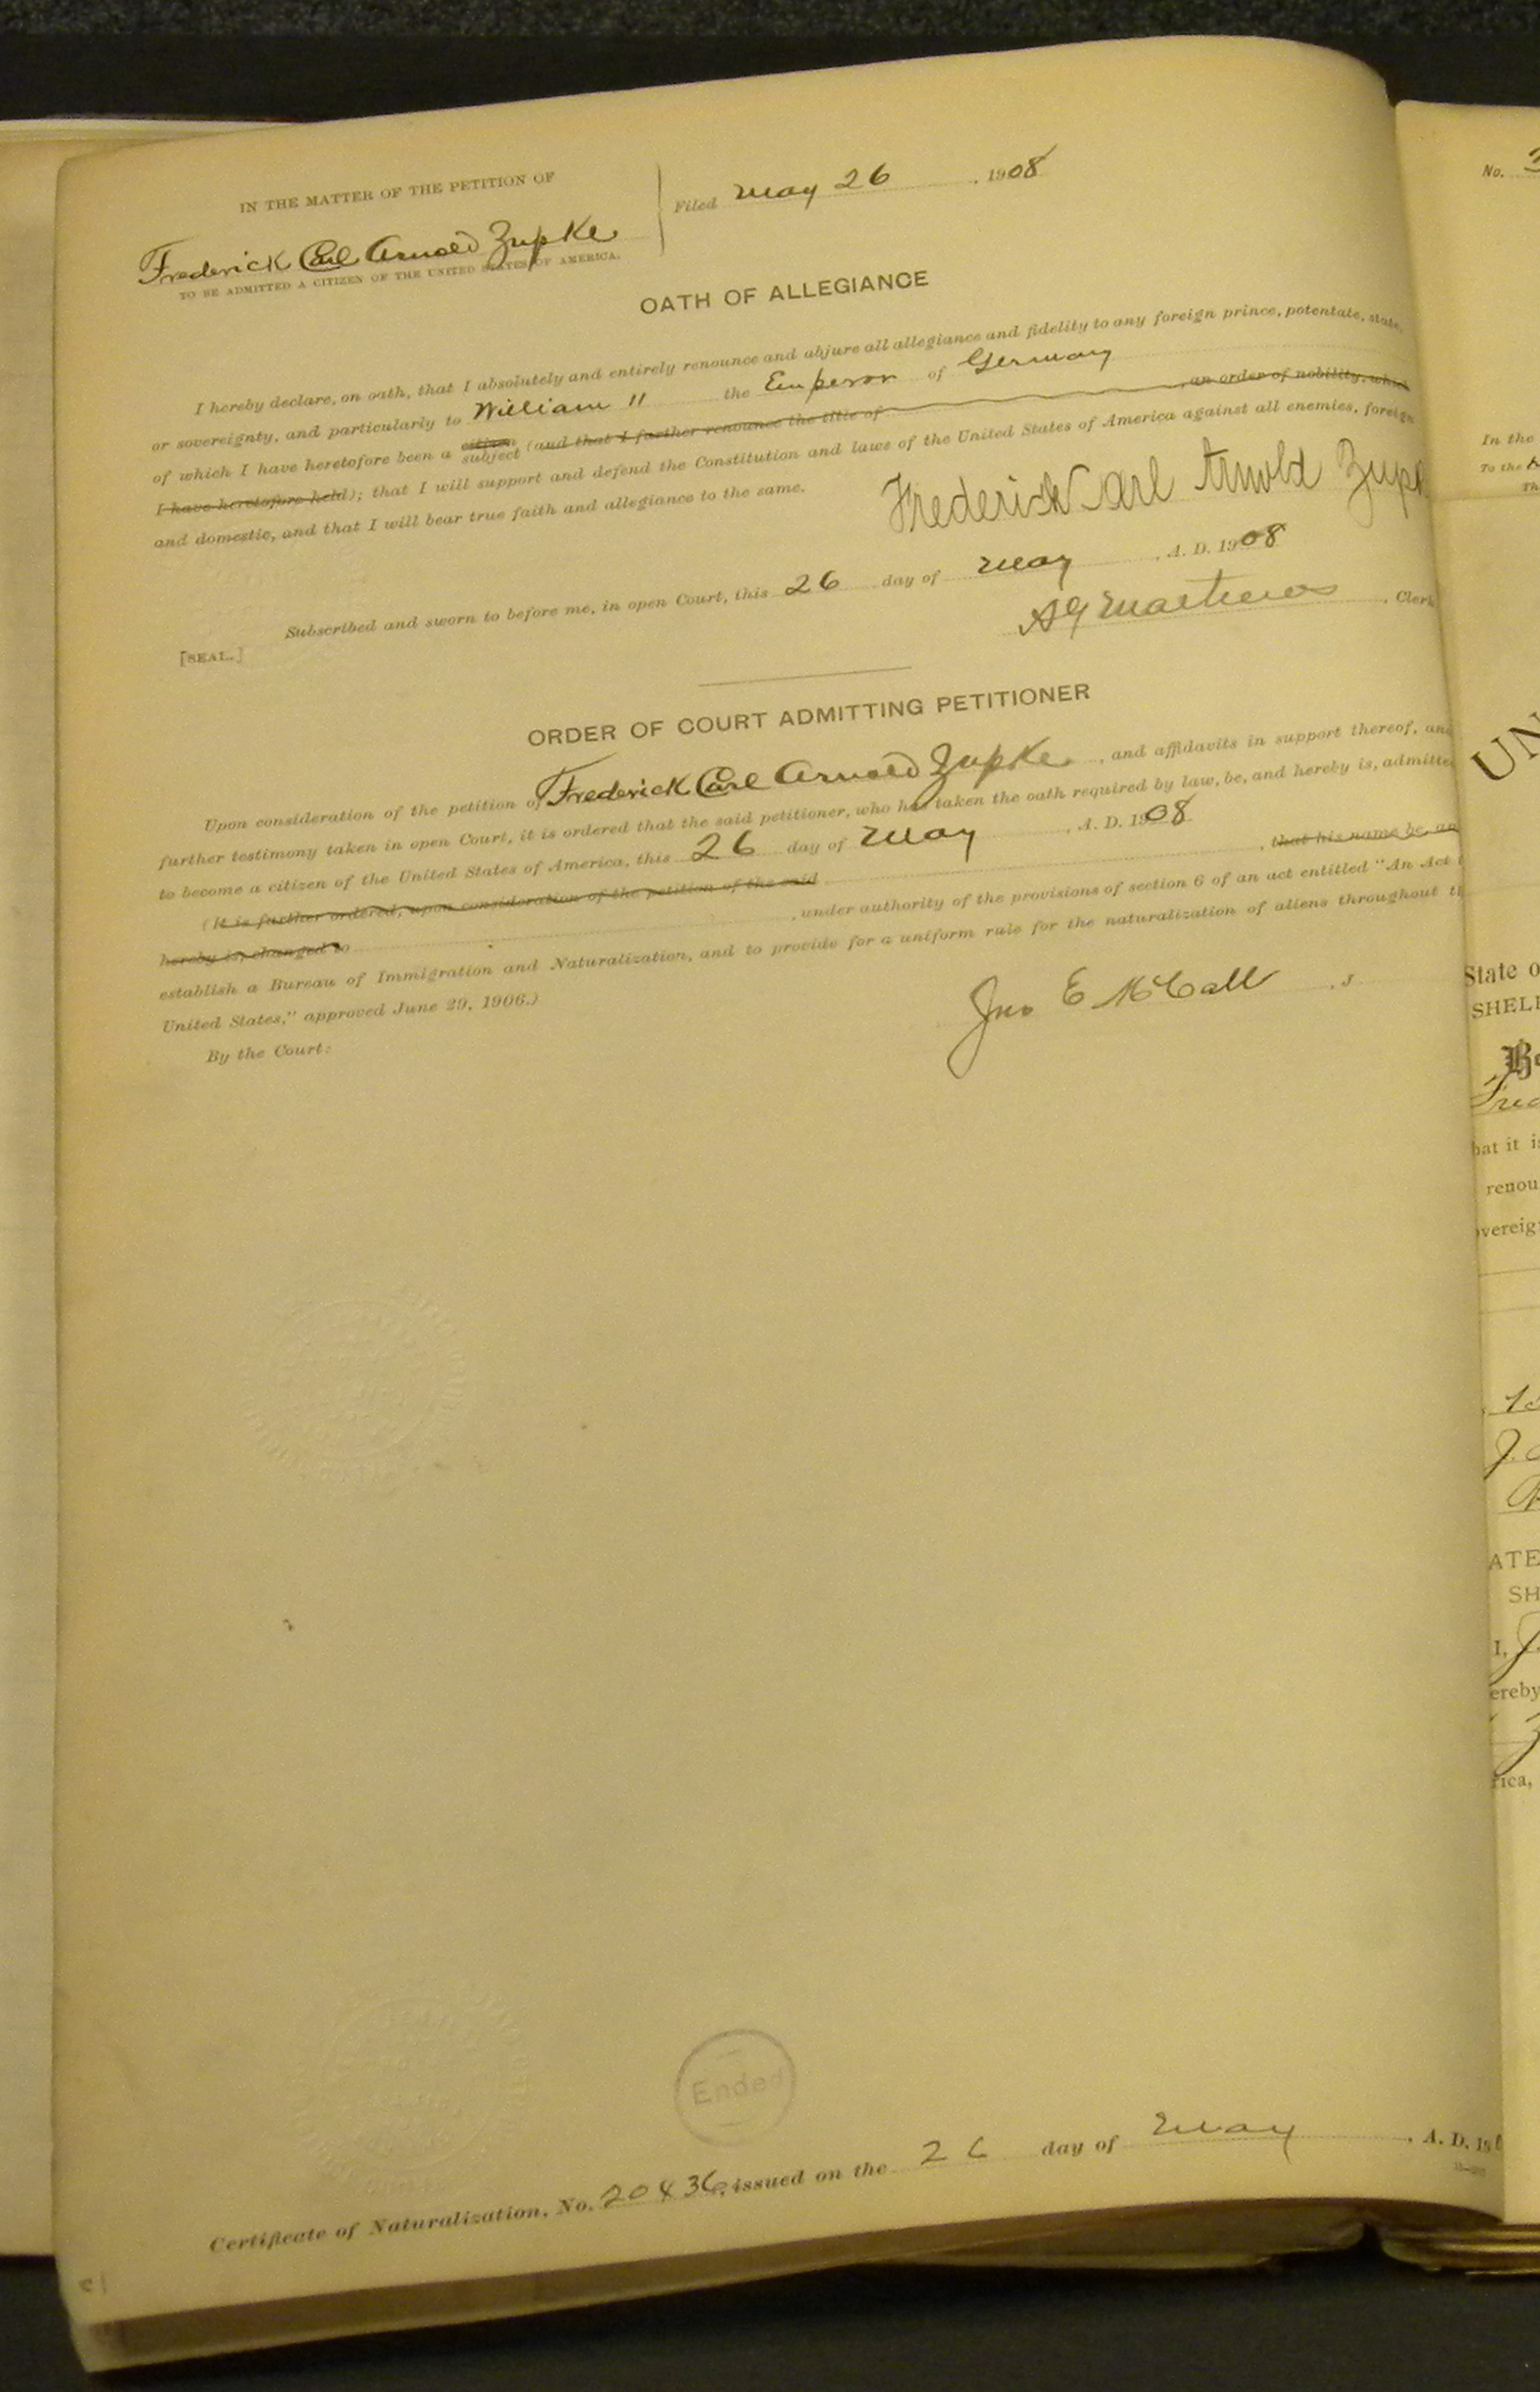 IN THE MATTER OF THE PETITION OF
Frederick Carl Arnold Zupke
TO BE ADMITTED A CITIZEN OF THE UNITED STATES OF AMERICA.
Filed May 26, 1908
OATH OF ALLEGIANCE
I hereby declare, on oath, that I absolutely and entirely renounce and abjure all allegiance and fidelity to any foreign prince, potentate, state,
or sovereignty, and particularly to William II the Emperor of Germany
of which I have heretofore been a citizen subject (and that I further renounce the title of , an order of nobility, which
I have heretofore held); that I will support and defend the Constitution and laws of the United States of America against all enemies, foreign
and domestic, and that I will bear true faith and allegiance to the same.
Frederick Carl Arnold Zupk
Subscribed and sworn to before me, in open Court, this 26 day of May, A. D. 1908
[SEAL.]
A G Matthews, Clerk
ORDER OF COURT ADMITTING PETITIONER
Upon consideration of the petition of Frederick Carl Arnold Zupke, and affidavits in support thereof, and
further testimony taken in open Court, it is ordered that the said petitioner, who has taken the oath required by law, be, and hereby is, admitted
to become a citizen of the United States of America, this 26 day of May, A. D. 1908
(It is further ordered, upon consideration of the petition of the said , that his name be, an
hereby is, changed to , under authority of the provisions of section 6 of an act entitled "An Act t
establish a Bureau of Immigration and Naturalization, and to provide for a uniform rule for the naturalization of aliens throughout th
United States," approved June 29, 1906.)
By the Court:
Jno E McCall, J
Ended
Certificate of Naturalization, No. 20436, issued on the 26 day of May, A. D. 190
No. 3
In the
To the
Th
UN
State o
SHEL
Be
Fred
hat it is
renou
vereig
J.
ATE
SH
I, J
ereby
rica,